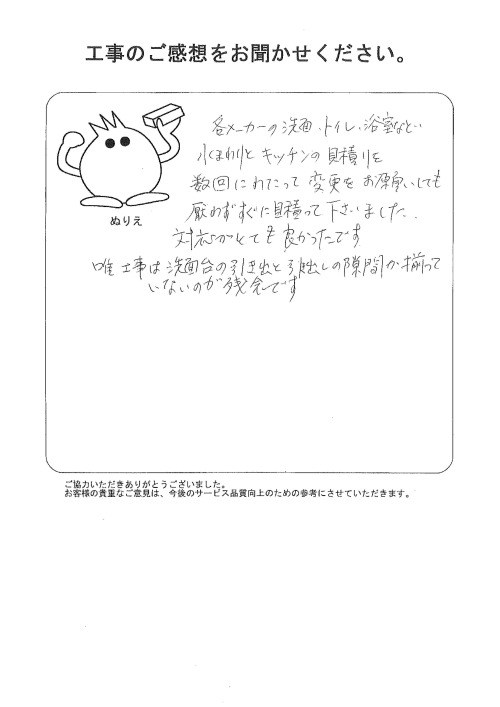 工事のご感想をお聞かせください。
各メーカーの洗面、トイレ、浴室など…
水まわりとキッチンの見積りを
数回にわたって変更をお願いしても
厭わずすぐに見積って下さいました。
対応がとても良かったです
唯工事は洗面台の引き出と引出しの隙間が揃って
いないのが残念です
ぬりえ
ご協力いただきありがとうございました。
お客様の貴重なご意見は、今後のサービス品質向上のための参考にさせていただきます。